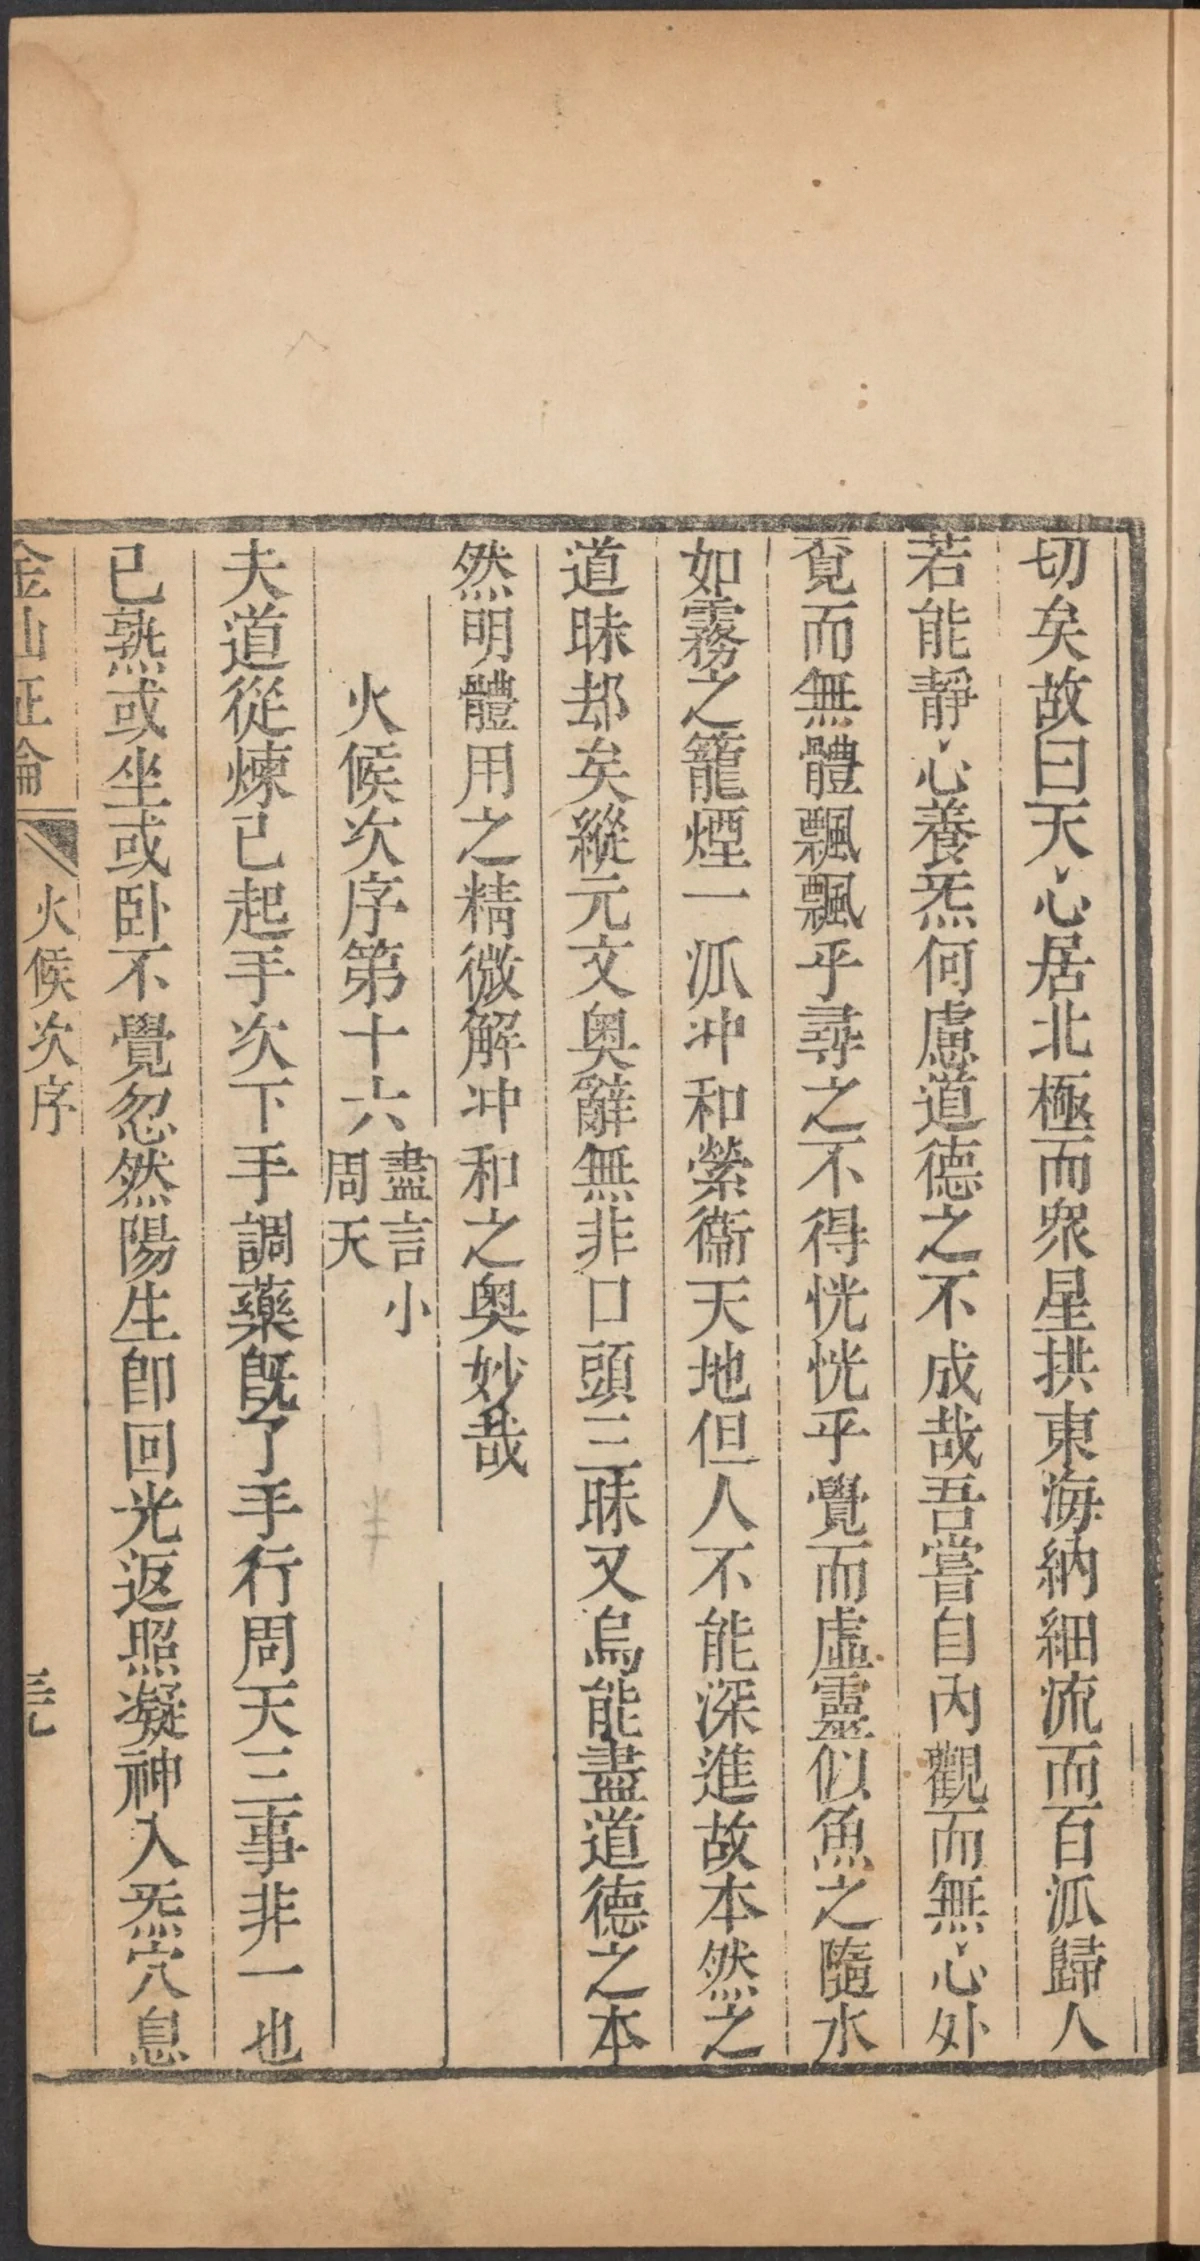 切矣故曰天心居北極而眾星拱東海納細流而百派歸人
若能靜心養炁何慮道德之不成哉吾嘗自內觀而無心外
覔而無體飄飄乎尋之不得恍恍乎覺而虛靈似魚之隨水
如霧之籠煙一派冲和縈衞天地但人不能深進故本然之
道昧却矣縱元文奥辭無非口頭三昧又烏能盡道德之本
然明體用之精微解冲和之奥妙哉
火候次序第十六
盡言小
周天
夫道從煉己起手次下手調藥既了手行周天三事非一也
已熟或坐或卧不覺忽然陽生卽回光返照凝神入炁穴息
金仙証論
火候次序